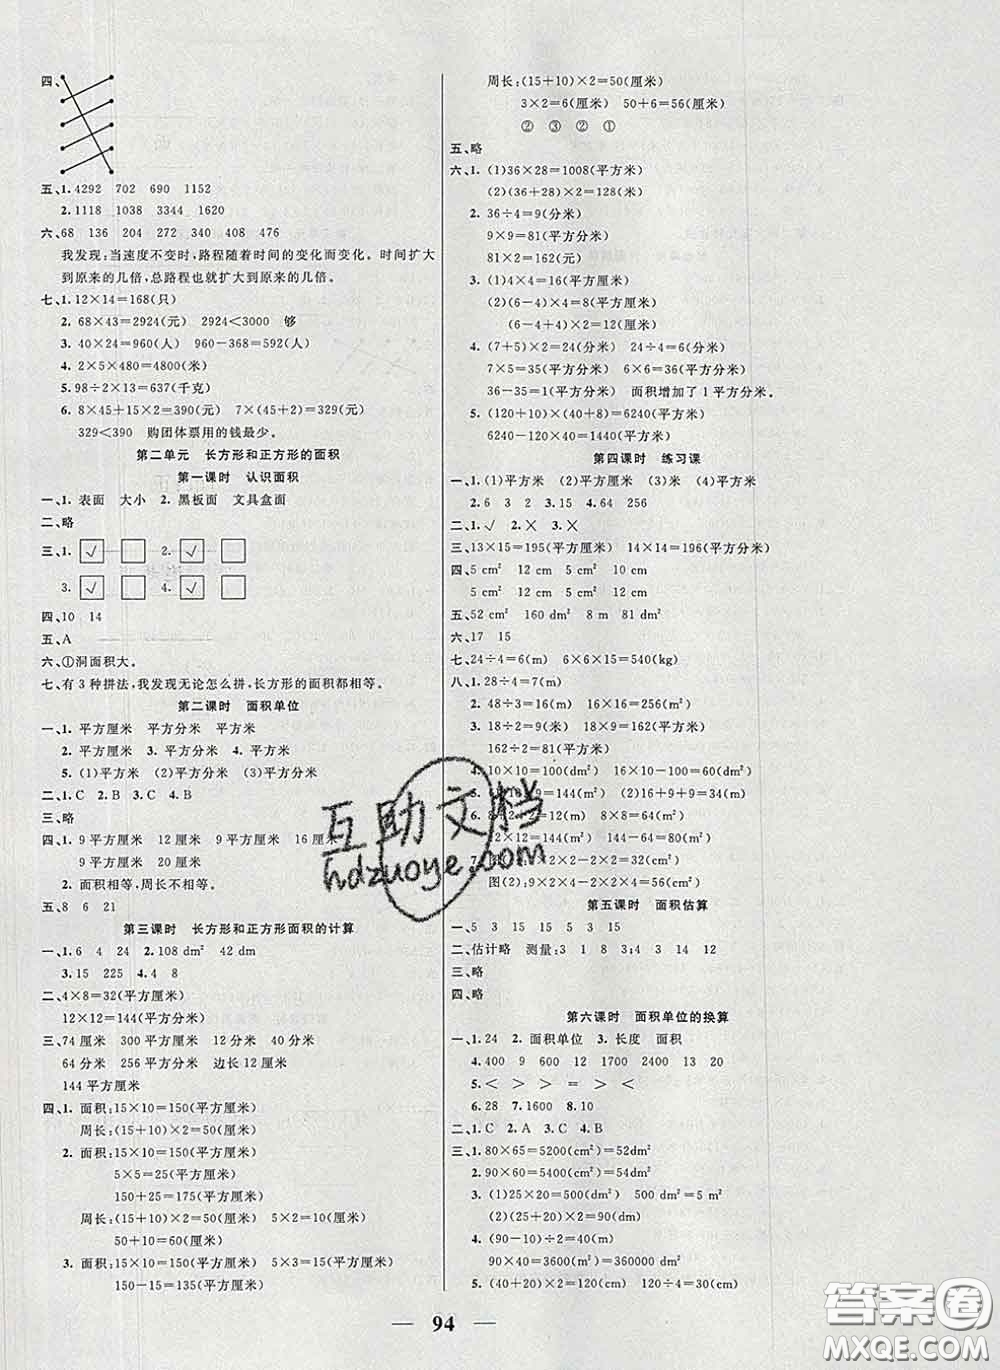 四、
五、1. 4292 702 690 1152
2. 1118 1038 3344 1620
六、68 136 204 272 340 408 476
我发现:当速度不变时,路程随着时间的变化而变化。时间扩大
到原来的几倍,总路程也就扩大到原来的几倍。
七、1. 12×14=168(只)
2. 68×43=2924(元) 2924<3000 够
3. 40×24=960(人) 960-368=592(人)
4. 2×5×480=4800(米)
5. 98÷2×13=637(千克)
6. 8×45+15×2=390(元) 7×(45+2)=329(元)
329<390 购团体票用的钱最少。
第二单元 长方形和正方形的面积
第一课时 认识面积
一、1. 表面 大小 2. 黑板面 文具盒面
二、略
三、1. √ 2. √
3. √ 4. √
四、10 14
五、A
六、①洞面积大。
七、有3种拼法,我发现无论怎么拼,长方形的面积都相等。
第二课时 面积单位
一、1. 平方厘米 平方分米 平方米
2. 平方厘米 3. 平方分米 4. 平方米
5. (1)平方米 (2)平方分米 (3)平方厘米
二、1. C 2. B 3. C 4. B
三、略
四、1. 9平方厘米 12厘米 9平方厘米 16厘米
9平方厘米 20厘米
2. 面积相等,周长不相等。
五、8 6 21
第三课时 长方形和正方形面积的计算
一、1. 6 4 24 2. 108 dm² 42 dm
3. 15 225 4. 4 8
二、4×8=32(平方厘米)
12×12=144(平方分米)
三、74厘米 300平方厘米 12分米 40分米
64分米 256平方分米 边长12厘米
144平方厘米
四、1. 面积:15×10=150(平方厘米)
周长:(15+10)×2=50(厘米)
2. 面积:15×10=150(平方厘米)
5×5=25(平方厘米)
150+25=175(平方厘米)
周长:(15+10)×2=50(厘米) 5×2=10(厘米)
50+10=60(厘米)
3. 面积:15×10=150(平方厘米) 5×3=15(平方厘米)
150-15=135(平方厘米)
周长:(15+10)×2=50(厘米)
3×2=6(厘米) 50+6=56(厘米)
② ③ ② ①
五、略
六、1. (1)36×28=1008(平方米)
(2)(36+28)×2=128(米)
2. 36÷4=9(分米)
9×9=81(平方分米)
81×2=162(元)
3. (1)4×4=16(平方厘米)
(2)(6-4)×4=8(平方厘米)
(6-4+4)×2=12(厘米)
4. (7+5)×2=24(分米) 24÷4=6(分米)
7×5=35(平方分米) 6×6=36(平方分米)
36-35=1(平方分米) 面积增加了1平方分米。
5. (120+10)×(40+8)=6240(平方米)
6240-120×40=1440(平方米)
第四课时 练习课
一、1. (1)平方米 (2)平方厘米 (3)米 (4)平方分米
2. 6 3 2 3. 15 4. 64 256
二、1. √ 2. × 3. ×
三、13×15=195(平方厘米) 14×14=196(平方分米)
四、5 cm² 12 cm 5 cm 10 cm
5 cm² 12 cm 5 cm² 12 cm
五、52 cm² 160 dm² 8 m 81 dm²
六、17 15
七、24÷4=6(m) 6×6×15=540(kg)
八、1. 28÷4=7(m)
2. 48÷3=16(m) 16×16=256(m²)
3. 18÷2=9(m) 18×9=162(平方厘米)
162÷2=81(平方厘米)
4. 10×10=100(dm²) 16×10=160(dm²)
16×9=144(m²) (2)16+9+9=34(m)
12=144(dm²) 8×8=64(dm²)
2=12(dm) 144-64=80(dm²)
×2+2×2-2=32(cm)
图(2):9×2×2+4×4=56(cm)
第五课时 面积估算
一、5 3 15 15 5 3 15
二、估计略 测量:3 1 8 8;3 4 3 14 12
三、略
四、略
第六课时 面积单位的换算
一、1. 24 2. 面积单位 3. 长度 面积
4. 400 9 600 12 1700 2400 13 20
5. < > > = > <
6. 28 7. 1600 8. 10
二、1. C 2. A 3. C 4. B
三、1. 80×65=5200(cm²)=52dm²
2. 90×60=5400(cm²)=54dm²
3. (1)25×20=500(dm²) 500 dm²=5 m²
(2)(25+20)×2=90(dm)
4. (90-10)÷2=40(m)
90×40=3600(m²)=360000 dm²
5. (40+20)×2=120(cm) 120÷4=30(cm)
94
互助文档
hdzuoye.com
答案圈
MXQE.COM